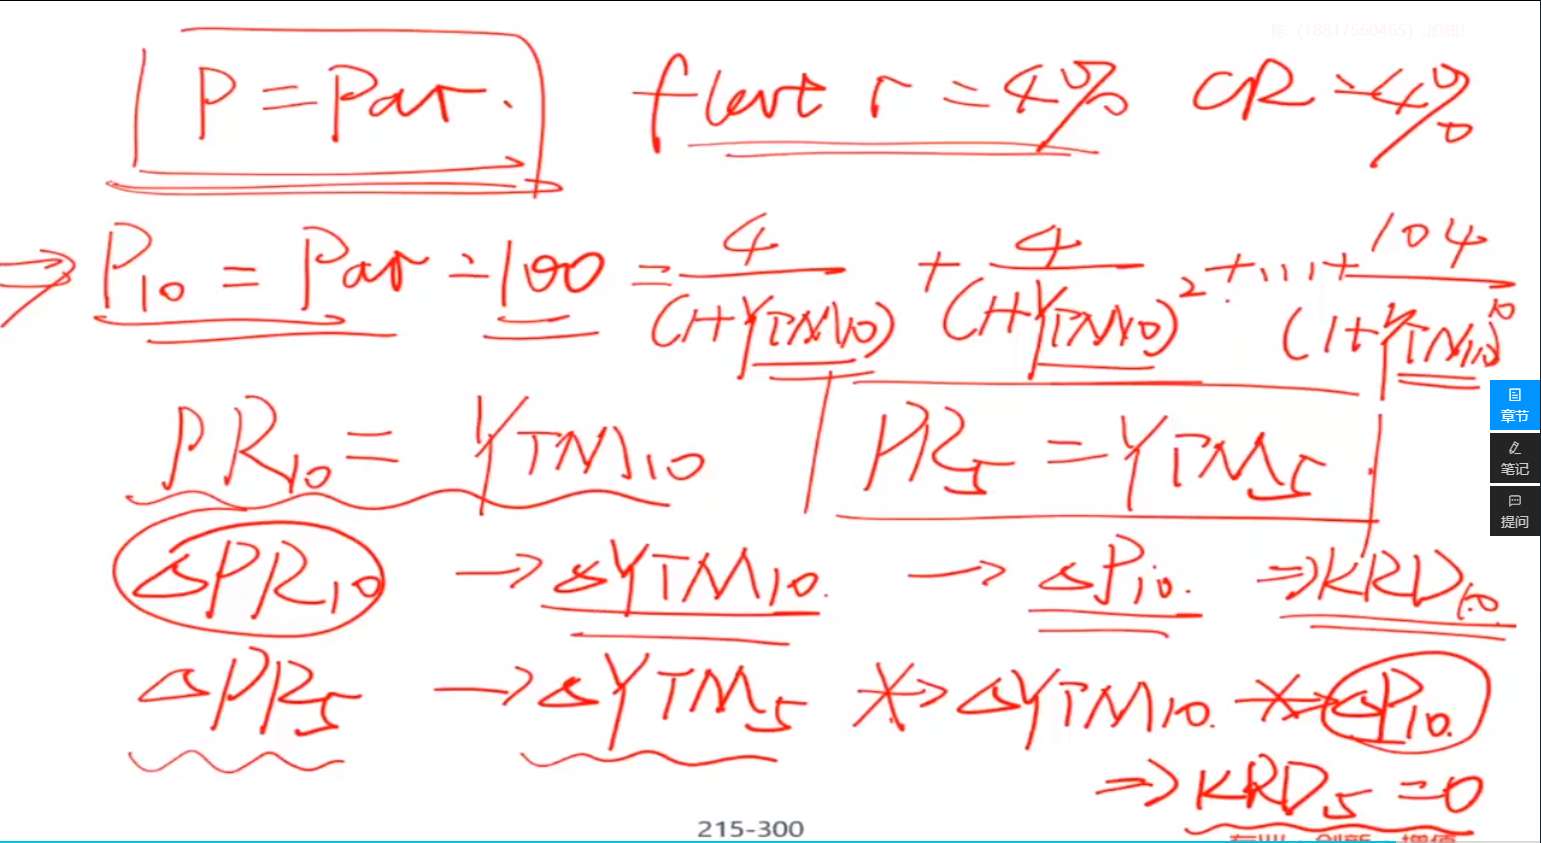 P = Par. flat r = 4% CR = 4%
⇒ P₁₀ = Par = 100 = 4/(1+YTM₁₀) + 4/(1+YTM₁₀)² + ... + 104/(1+YTM₁₀)¹⁰
PR₁₀ = YTM₁₀ PR₅ = YTM₅.
章节
笔记
提问
△PR₁₀ → △YTM₁₀. → △P₁₀. ⇒ KRD₁₀.
△PR₅ → △YTM₅ ↛ △YTM₁₀. ↛ △P₁₀.
⇒ KRD₅ = 0
215-300